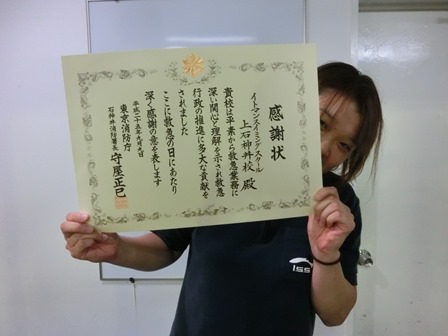 感謝状
イトマンスイミングスクール
上石神井校 殿
貴校は平素から救急業務に
深い関心と理解を示され救急
行政の推進に多大な貢献を
されました
ここに救急の日にあたり
深く感謝の意を表します
平成二十五年九月九日
東京消防庁
石神井消防署長 守屋正巳
Iss